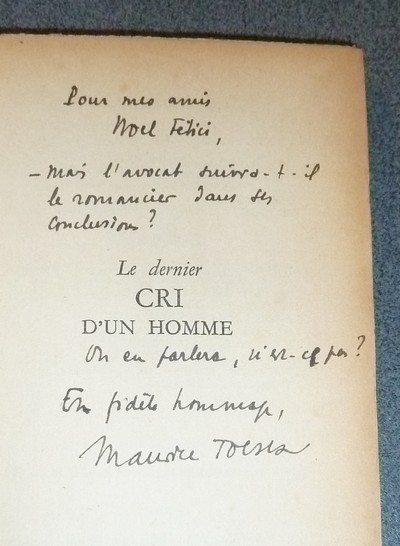 Pour mes amis
Noel Felici,
- mais l'avocat suivra-t-il
le romancier dans ses
conclusions?
Le dernier
CRI
D'UN HOMME
On en parlera, n'est-ce pas?
En fidèle hommage,
Maurice Toesca